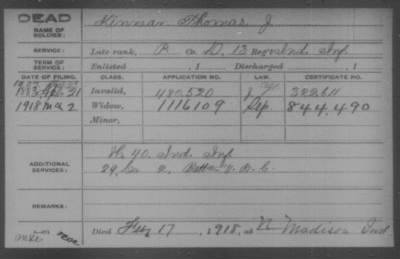 DEAD
NAME OF SOLDIER: Kinnar Thomas J.
SERVICE: Late rank, P Co D, 13 Reg't Ind Inf
TERM OF SERVICE: Enlisted , 1 Discharged , 1
DATE OF FILING. CLASS. APPLICATION NO. LAW. CERTIFICATE NO.
21 Invalid, 480,520 J 382611
1918 Ma 2 Widow, 1116109 Sep. 844,490
Minor,
ADDITIONAL SERVICES: H, 40, Ind Inf
29, Co V. R. C.
REMARKS:
Died Feby 17, 1918, at N Madison Ind.